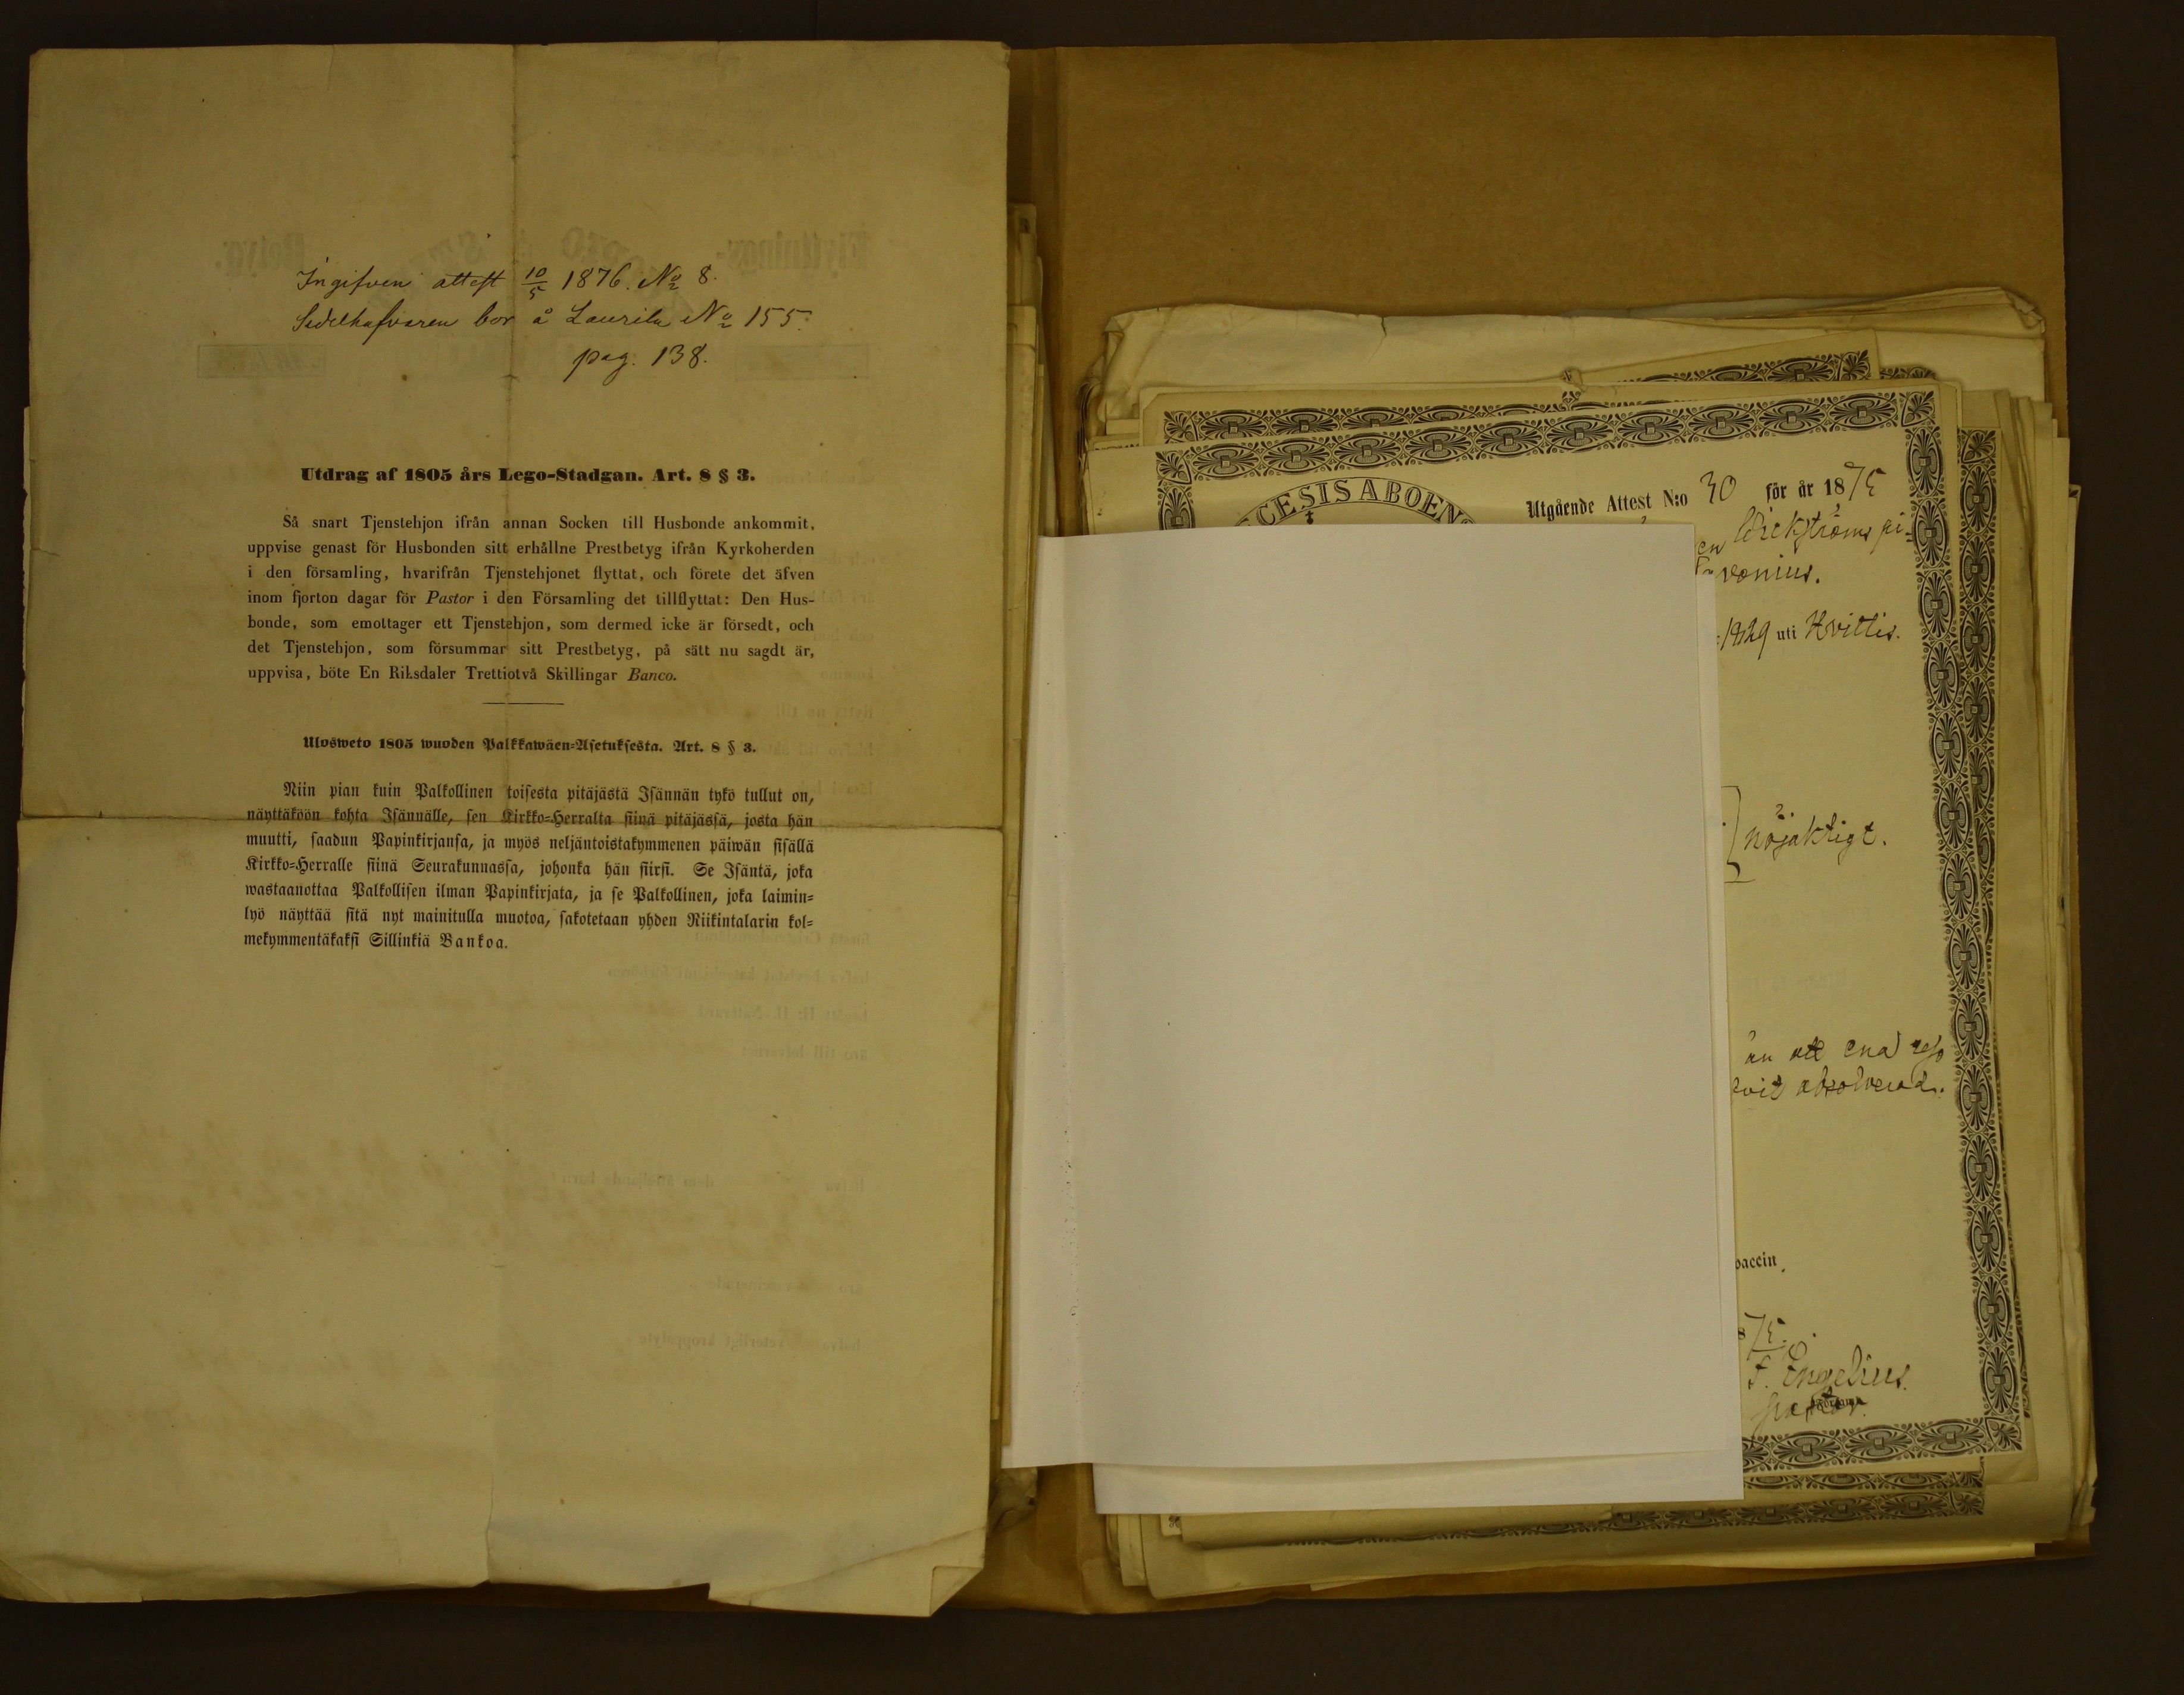 Ingifven attest 10/5 1876. No 8.
Sedelhafvaren bor å Laurila No 155.
pag. 138.
Utdrag af 1805 års Lego-Stadgan. Art. 8 § 3.
Så snart Tjenstehjon ifrån annan Socken till Husbonde ankommit,
uppvise genast för Husbonden sitt erhållne Prestbetyg ifrån Kyrkoherden
i den församling, hvarifrån Tjenstehjonet flyttat, och förete det äfven
inom fjorton dagar för Pastor i den Församling det tillflyttat: Den Hus-
bonde, som emottager ett Tjenstehjon, som dermed icke är försedt, och
det Tjenstehjon, som försummar sitt Prestbetyg, på sätt nu sagdt är,
uppvisa, böte En Riksdaler Trettiotvå Skillingar Banco.
Ulosweto 1805 wuoden Palkkawäen-Asetuksesta. Art. 8 § 3.
Niin pian kuin Palkollinen toisesta pitäjästä Isännän tykö tullut on,
näyttäköön kohta Isännälle, sen Kirkko-Herralta siinä pitäjässä, josta hän
muutti, saadun Papinkirjansa, ja myös neljäntoistakymmenen päiwän sisällä
Kirkko-Herralle siinä Seurakunnassa, johonka hän siirsi. Se Isäntä, joka
wastaanottaa Palkollisen ilman Papinkirjata, ja se Palkollinen, joka laimin-
lyö näyttää sitä nyt mainitulla muotoa, sakotetaan yhden Riikintalarin kol-
mekymmentäkaksi Sillinkiä Bankoa.
CESIS ABOEN
Utgående Attest N:o 30 för år 1875
en Wickströms pi-
vonius.
1829 uti Hvittis.
nöjaktigt.
än att ena
absolverad.
vaccin.
875.
F. Engelius.
pastor.